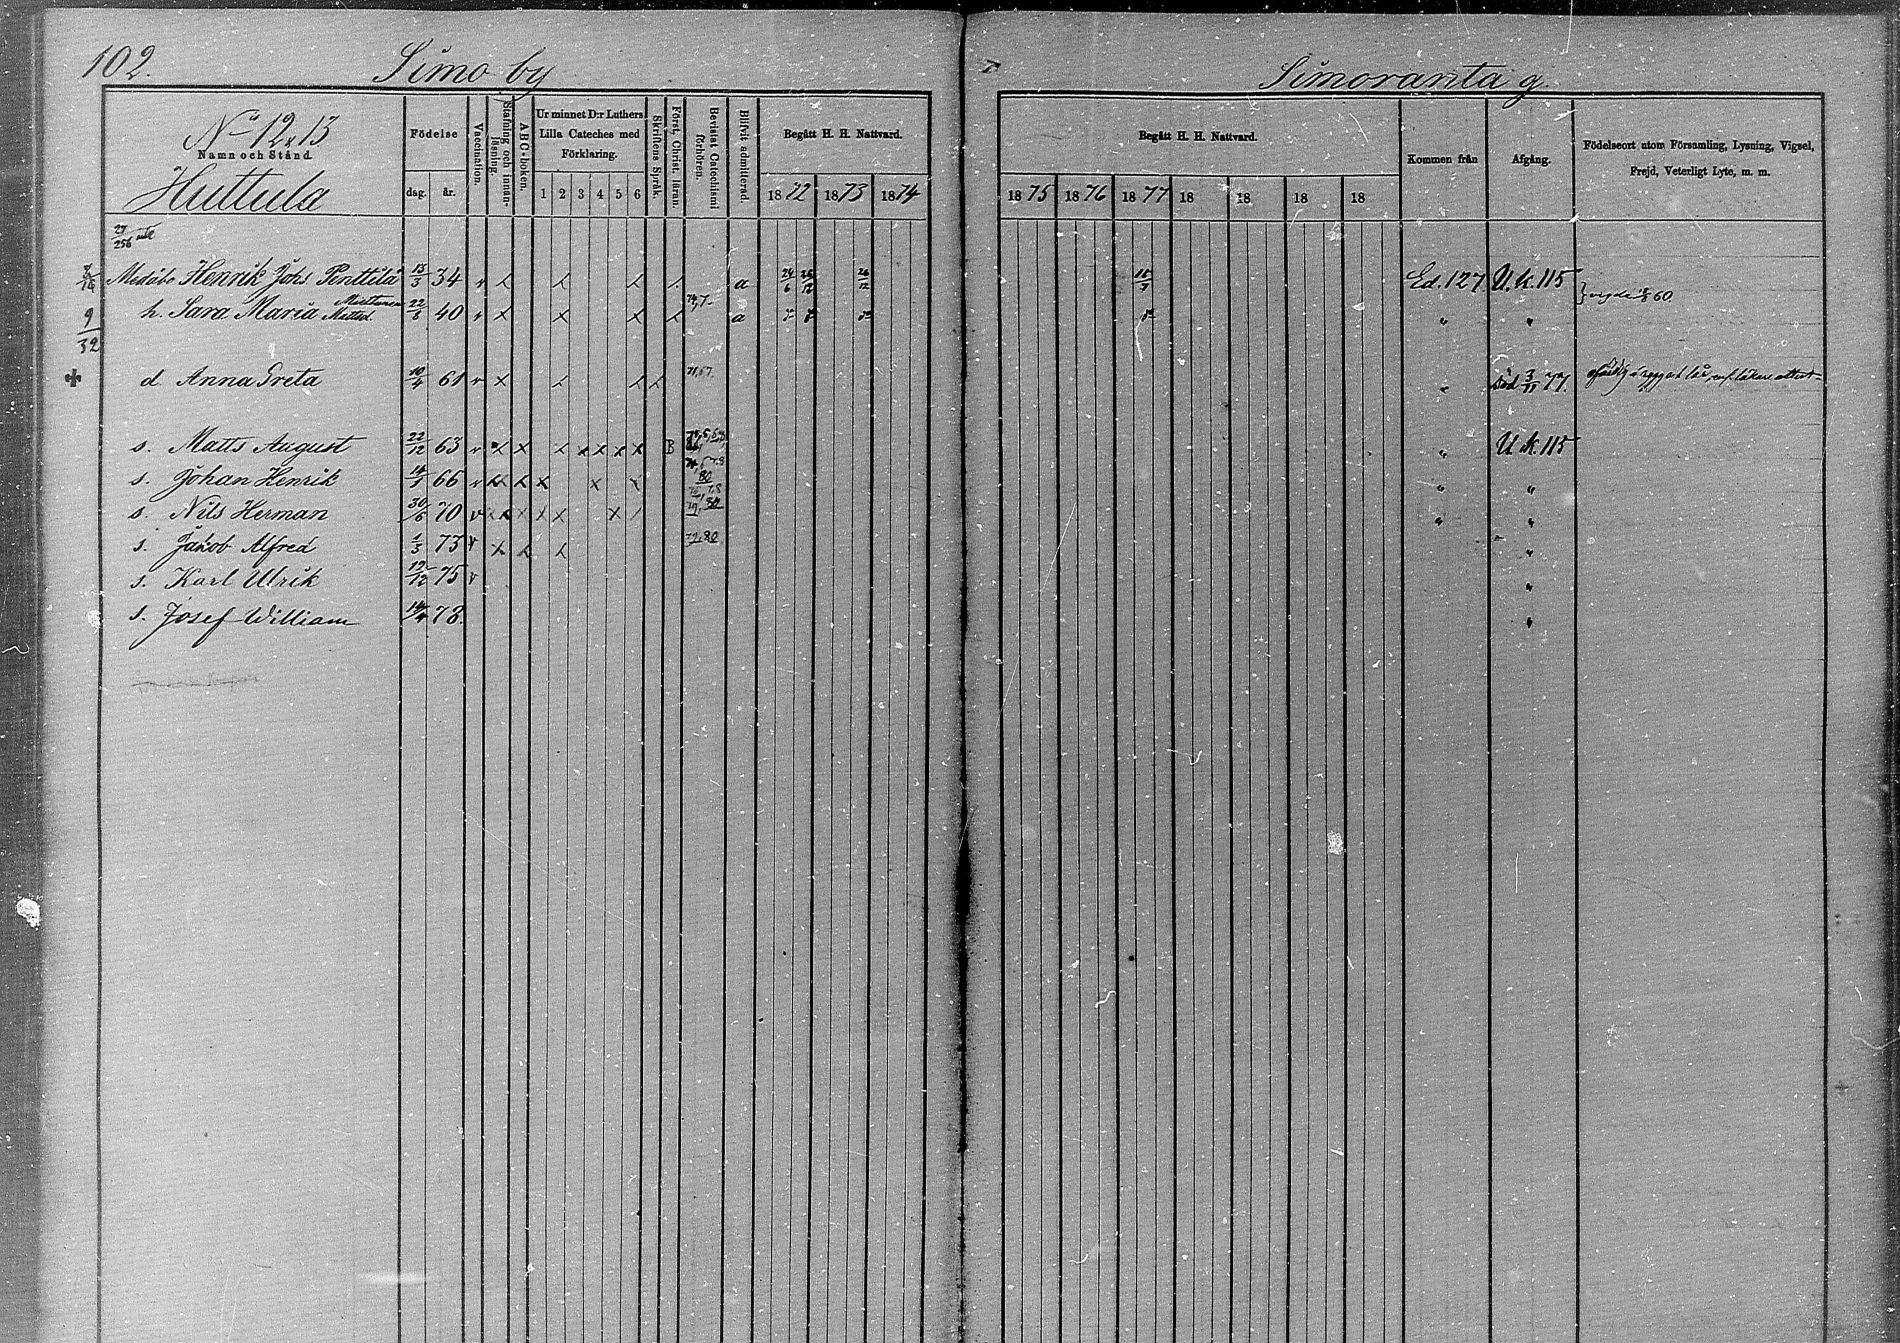 102. Simo by Simoranta g.
No 12 & 13
Namn och Stånd.
Huttula
Födelse
dag. år.
Vaccination.
Stafning och innanläsning.
ABC-boken.
Ur minnet D:r Luthers
Lilla Cateches med
Förklaring.
1 2 3 4 5 6
Skriftens Språk.
Först. Christ. läran.
Bevistat Catechismi förhören.
Blifvit admitterad.
Begått H. H. Nattvard.
1872 1873 1874
Begått H. H. Nattvard.
1875 1876 1877 18 18 18 18
Kommen från
Afgång.
Födelseort utom Församling, Lysning, Vigsel,
Frejd, Veterligt Lyte, m. m.
27/256 mtl
Medåbo Henrik Johs. Penttilä 13/3 34 v a 24/6 26/12 26/12 15/7 Ed. 127 U.k. 115
9/32 h. Sara Maria Miettunen Mattsd. 22/8 40 v a " " } vigde 60
d Anna Greta 10/4 61 v " död 3/11 77.
s. Matts August 22/12 63 v B " U.k. 115
s. Johan Henrik 14/5 66 v 80 " "
s. Nils Herman 30/6 70 v " "
s. Jakob Alfred 1/3 73 v 79.80 "
s. Karl Ulrik 19/12 75 v "
s. Josef William 14/4 78. "